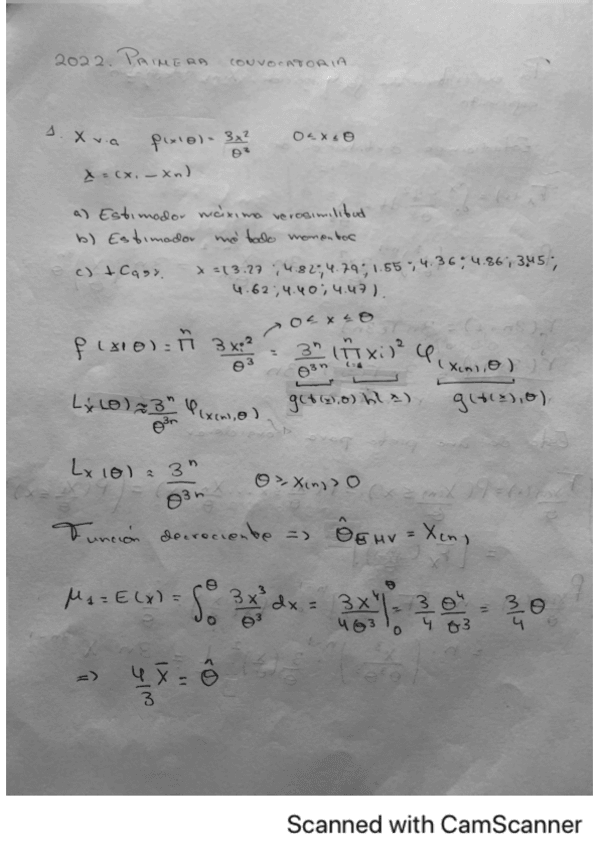 2022. PRIMERA CONVOCATORIA
1. X v.a f(x|θ) = 3x²/θ³ 0 ≤ x ≤ θ
x = (x₁ – xn)
a) Estimador máxima verosimilitud
b) Estimador método momentos
c) x = (3.27; 4.82; 4.79; 1.55; 4.36; 4.86; 3.45;
4.62; 4.40; 4.47).
→ 0 ≤ x ≤ θ
f(x|θ) = Π^n 3xi²/θ³ = 3^n/θ^3n (Π^n xi)² φ(x(n), θ)
Lx(θ) ≈ 3^n/θ^3n φ(x(n), θ) g(t(x), θ) h(x) g(t(x), θ)
Lx(θ) ≈ 3^n/θ^3n θ ≥ x(n) > 0
Función decreciente => θ̂EMV = X(n)
μ₁ = E(x) = ∫₀^θ 3x³/θ³ dx = 3x⁴/4θ³ |₀^θ = 3/4 θ⁴/θ³ = 3/4 θ
=> 4/3 x̄ = θ̂
Scanned with CamScanner